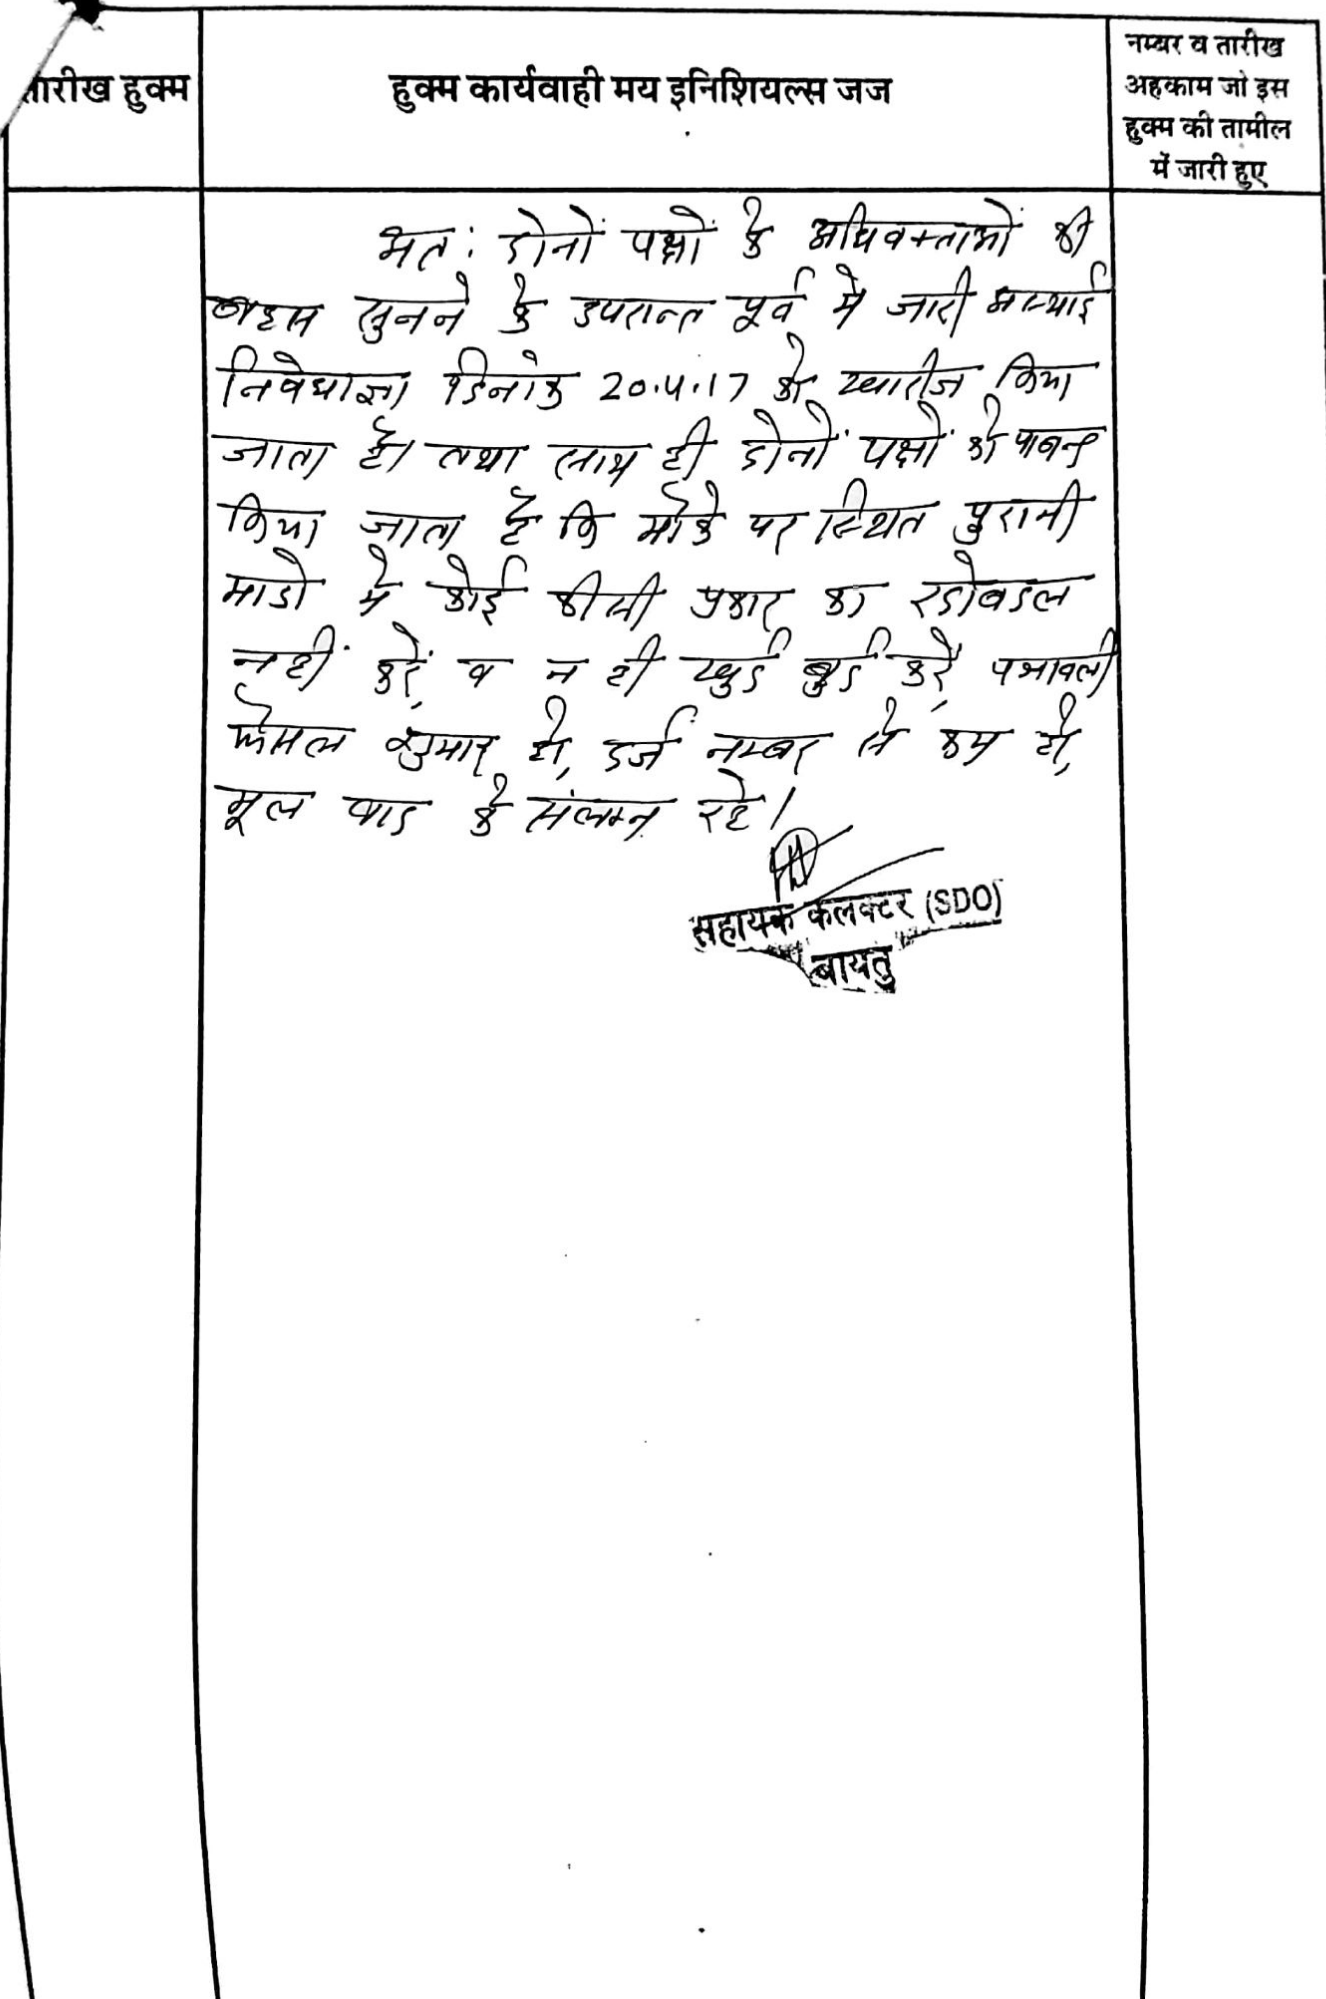 तारीख हुक्म
हुक्म कार्यवाही मय इनिशियल्स जज
नम्बर व तारीख
अहकाम जो इस
हुक्म की तामील
में जारी हुए
अत: दोनों पक्षों के अधिवक्ताओं की
बहस सुनने के उपरान्त पूर्व मे जारी अस्थाई
निषेधाज्ञा दिनांक 20.4.17 को खारीज किया
जाता है। तथा साथ ही दोनों पक्षों को पाबन्द
किया जाता है कि मौके पर स्थित पुरानी
माडो मे कोई कीसी प्रकार का रदोबदल
नहीं करें, व न ही खुर्द बुर्द करें, पत्रावली
फैसल शुमार हो, दर्ज नम्बर से कम हो,
मूल वाद के संलग्न रहे।
सहायक कलक्टर (SDO)
बायतु